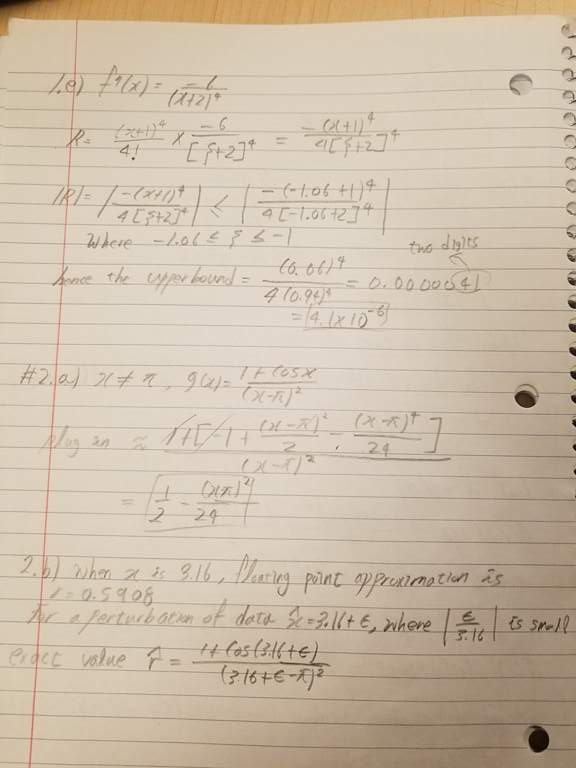 1.e) f⁴(x) = -6 / (x+2)⁴
R = (x+1)⁴ / 4! × -6 / [ξ+2]⁴ = -(x+1)⁴ / 4[ξ+2]⁴
|R| = |-(x+1)⁴ / 4[ξ+2]⁴| ≤ |-(-1.06+1)⁴ / 4[-1.06+2]⁴|
where -1.06 ≤ ξ ≤ -1
two digits
hence the upperbound = (0.06)⁴ / 4(0.94)⁴ = 0.0000041
= 4.1x10⁻⁶
#2.a) x ≠ π, g(x) = 1+cosx / (x-π)²
plug in ≈ 1+[-1 + (x-π)² / 2 - (x-π)⁴ / 24] / (x-π)²
= 1/2 - (xπ)² / 24
2.b) when x is 3.16, floating point approximation is
r=0.5908
For a perturbation of data x̂=3.16+ε, where |ε / 3.16| is small
exact value r̂ = 1+cos(3.16+ε) / (3.16+ε-π)²